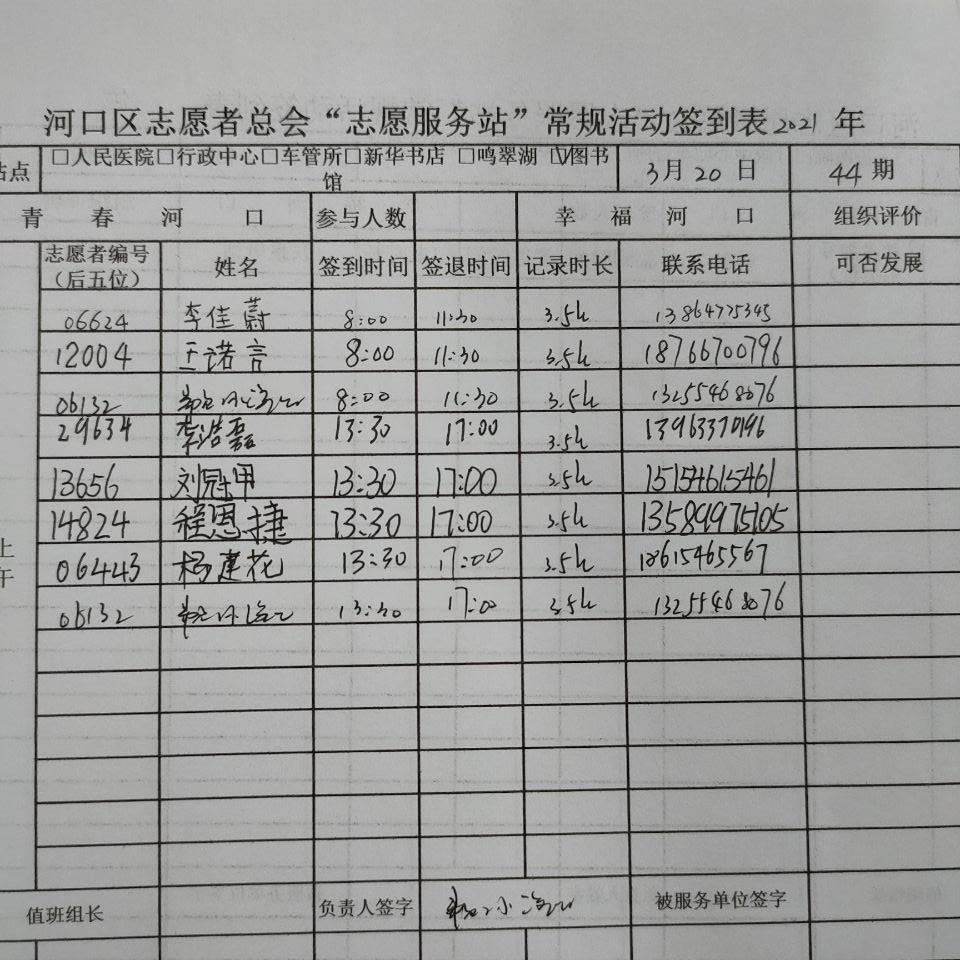 河口区志愿者总会“志愿服务站”常规活动签到表2021年
站点 □人民医院□行政中心□车管所□新华书店 □鸣翠湖 ☑图书馆 3月20日 44期
青春河口 参与人数 幸福河口 组织评价
志愿者编号（后五位） 姓名 签到时间 签退时间 记录时长 联系电话 可否发展
06624 李佳蔚 8:00 11:30 3.5h 13864775345
12004 王诺言 8:00 11:30 3.5h 18766700796
06132 8:00 11:30 3.5h 13255468076
29634 李浩磊 13:30 17:00 3.5h 13963370196
13656 刘冠甲 13:30 17:00 3.5h 15154615461
14824 程恩捷 13:30 17:00 3.5h 13589975105
06443 杨建花 13:30 17:00 3.5h 18615465567
06132 13:30 17:00 3.5h 13255468076
上午
值班组长 负责人签字 被服务单位签字